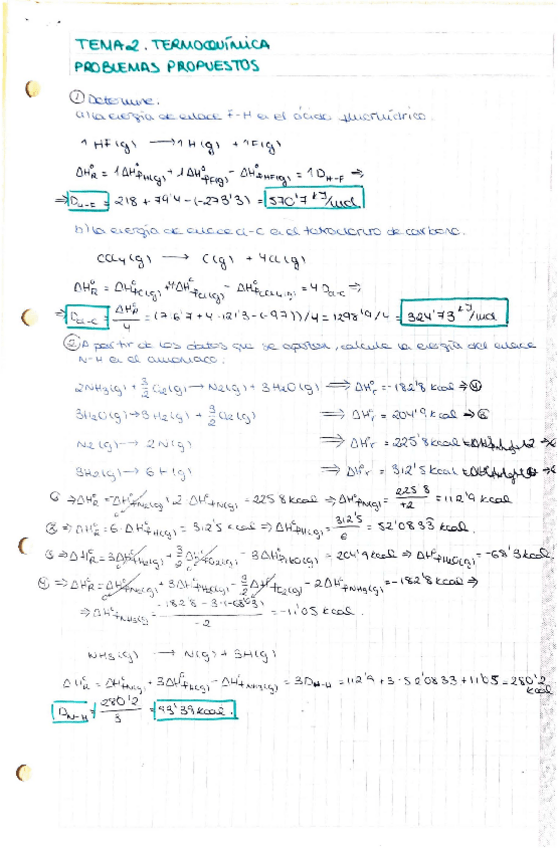 TEMA 2. TERMOQUÍMICA
PROBLEMAS PROPUESTOS
① Determine.
a) La energía de enlace F-H en el ácido fluorhídrico.
1 HF(g) → 1 H(g) + 1 F(g)
ΔH°R = 1ΔH°fH(g) + 1ΔH°fF(g) - ΔH°fHF(g) = 1 D H-F ⇒
⇒ D H-F = 218 + 79'4 - (-273'3) = 570'7 kJ/mol
b) La energía de enlace Cl-C en el tetracloruro de carbono.
CCl4(g) → C(g) + 4Cl(g)
ΔH°R = ΔH°fC(g) + 4ΔH°fCl(g) - ΔH°fCCl4(g) = 4 D Cl-C ⇒
⇒ D Cl-C = ΔH°R/4 = (716'7 + 4·121'3 - (-97))/4 = 1298'9/4 = 324'73 kJ/mol
② A partir de los datos que se aportan, calcule la energía del enlace
N-H en el amoniaco.
2NH3(g) + 3/2 O2(g) → N2(g) + 3H2O(g) ⇒ ΔH°r = -182'8 kcal ⇒ ④
3H2O(g) → 3H2(g) + 3/2 O2(g) ⇒ ΔH°r = 204'9 kcal ⇒
N2(g) → 2N(g) ⇒ ΔH°r = 225'8 kcal
3H2(g) → 6H(g) ⇒ ΔH°r = 312'5 kcal
⇒ ΔH°R = ΔH°fN2(g) 2·ΔH°fN(g) = 225'8 kcal ⇒ ΔH°fN(g) = 225'8/+2 = 112'9 kcal
⇒ ΔH°R = 6·ΔH°fH(g) = 312'5 kcal ⇒ ΔH°fH(g) = 312'5/6 = 52'0833 kcal.
⇒ ΔH°R = 3ΔH°fH2(g) + 3/2 ΔH°fO2(g) - 3ΔH°fH2O(g) = 204'9 kcal ⇒ ΔH°fH2O(g) = -68'3 kcal.
④ ⇒ ΔH°R = ΔH°fN2(g) + 3ΔH°fH2O(g) - 3/2 ΔH°fO2(g) - 2ΔH°fNH3(g) = -182'8 kcal ⇒
⇒ ΔH°fNH3(g) = -182'8 - 3·(-68'3)/-2 = -11'05 kcal.
NH3(g) → N(g) + 3H(g)
ΔH°R = ΔH°fN(g) + 3ΔH°fH(g) - ΔH°fNH3(g) = 3D N-H = 112'9 + 3·52'0833 + 11'05 = 280'2 kcal
D N-H = 280'2/3 = 93'39 kcal.